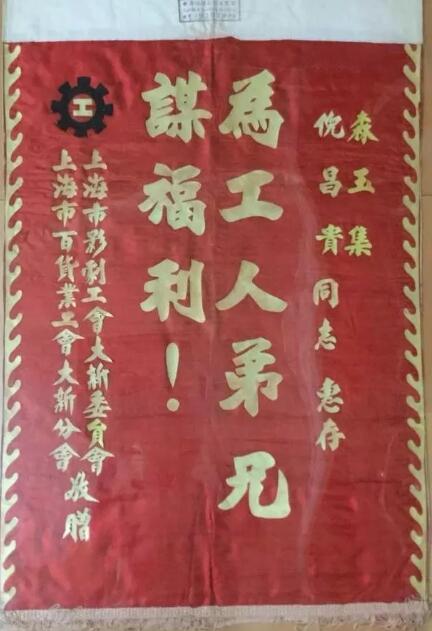 森玉集
倪昌貴同志惠存
為工人弟兄
謀福利！
工
上海市影劇工會大新委員會
上海市百貨業工會大新分會
敬贈